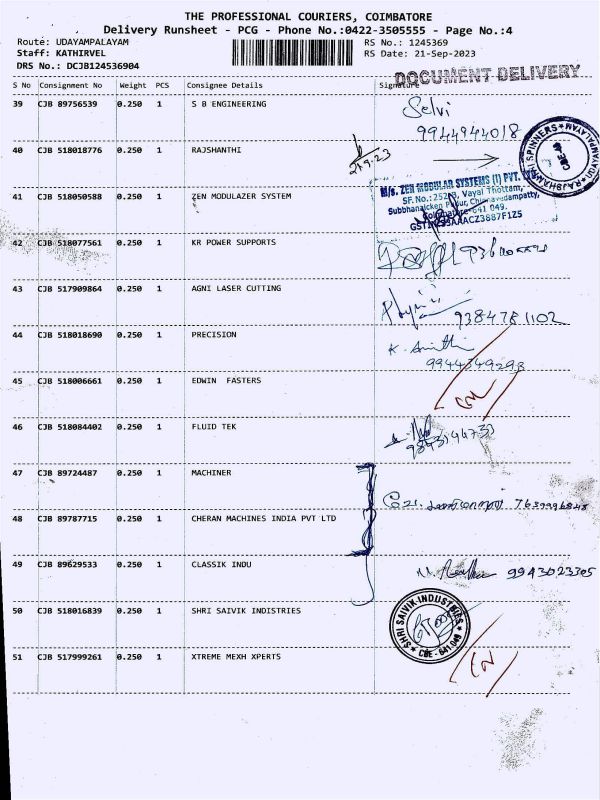 THE PROFESSIONAL COURIERS, COIMBATORE
Delivery Runsheet - PCG - Phone No.:0422-3505555 - Page No.:4
Route: UDAYAMPALAYAM RS No.: 1245369
Staff: KATHIRVEL RS Date: 21-Sep-2023
DRS No.: DCJB124536904
DOCUMENT DELIVERY
S No Consignment No Weight PCS Consignee Details Signature
39 CJB 89756539 0.250 1 S B ENGINEERING
Selvi
9944944018
40 CJB 518018776 0.250 1 RAJSHANTHI
21.9.23
RAJSHANTHI SPINNERS
41 CJB 518050588 0.250 1 ZEN MODULAZER SYSTEM
M/s. ZEN MODULAR SYSTEMS (I) PVT.
Vayal Thottam,
Coimbatore-641 049.
42 CJB 518077561 0.250 1 KR POWER SUPPORTS
43 CJB 517909864 0.250 1 AGNI LASER CUTTING
9384781102
44 CJB 518018690 0.250 1 PRECISION
9944349298
45 CJB 518006661 0.250 1 EDWIN FASTERS
46 CJB 518084402 0.250 1 FLUID TEK
47 CJB 89724487 0.250 1 MACHINER
48 CJB 89787715 0.250 1 CHERAN MACHINES INDIA PVT LTD
49 CJB 89629533 0.250 1 CLASSIK INDU
9943023305
50 CJB 518016839 0.250 1 SHRI SAIVIK INDISTRIES
SHRI SAIVIK INDUSTRIES
CBE - 641 049
51 CJB 517999261 0.250 1 XTREME MEXH XPERTS